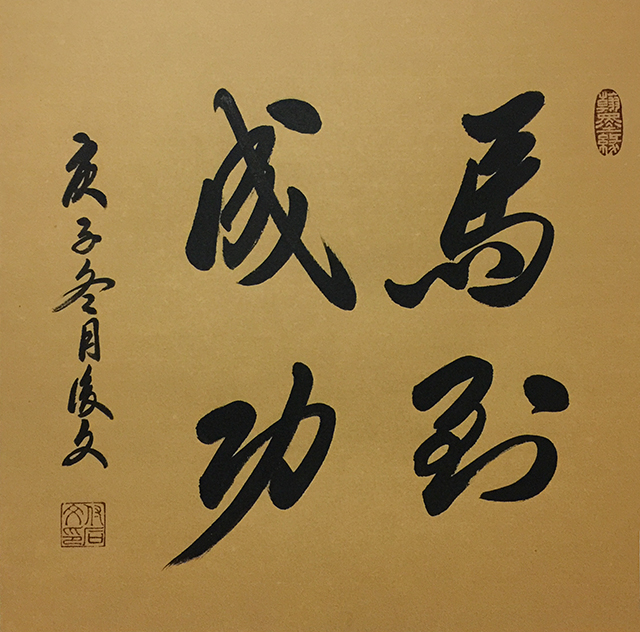 馬到
成功
庚子冬月後文